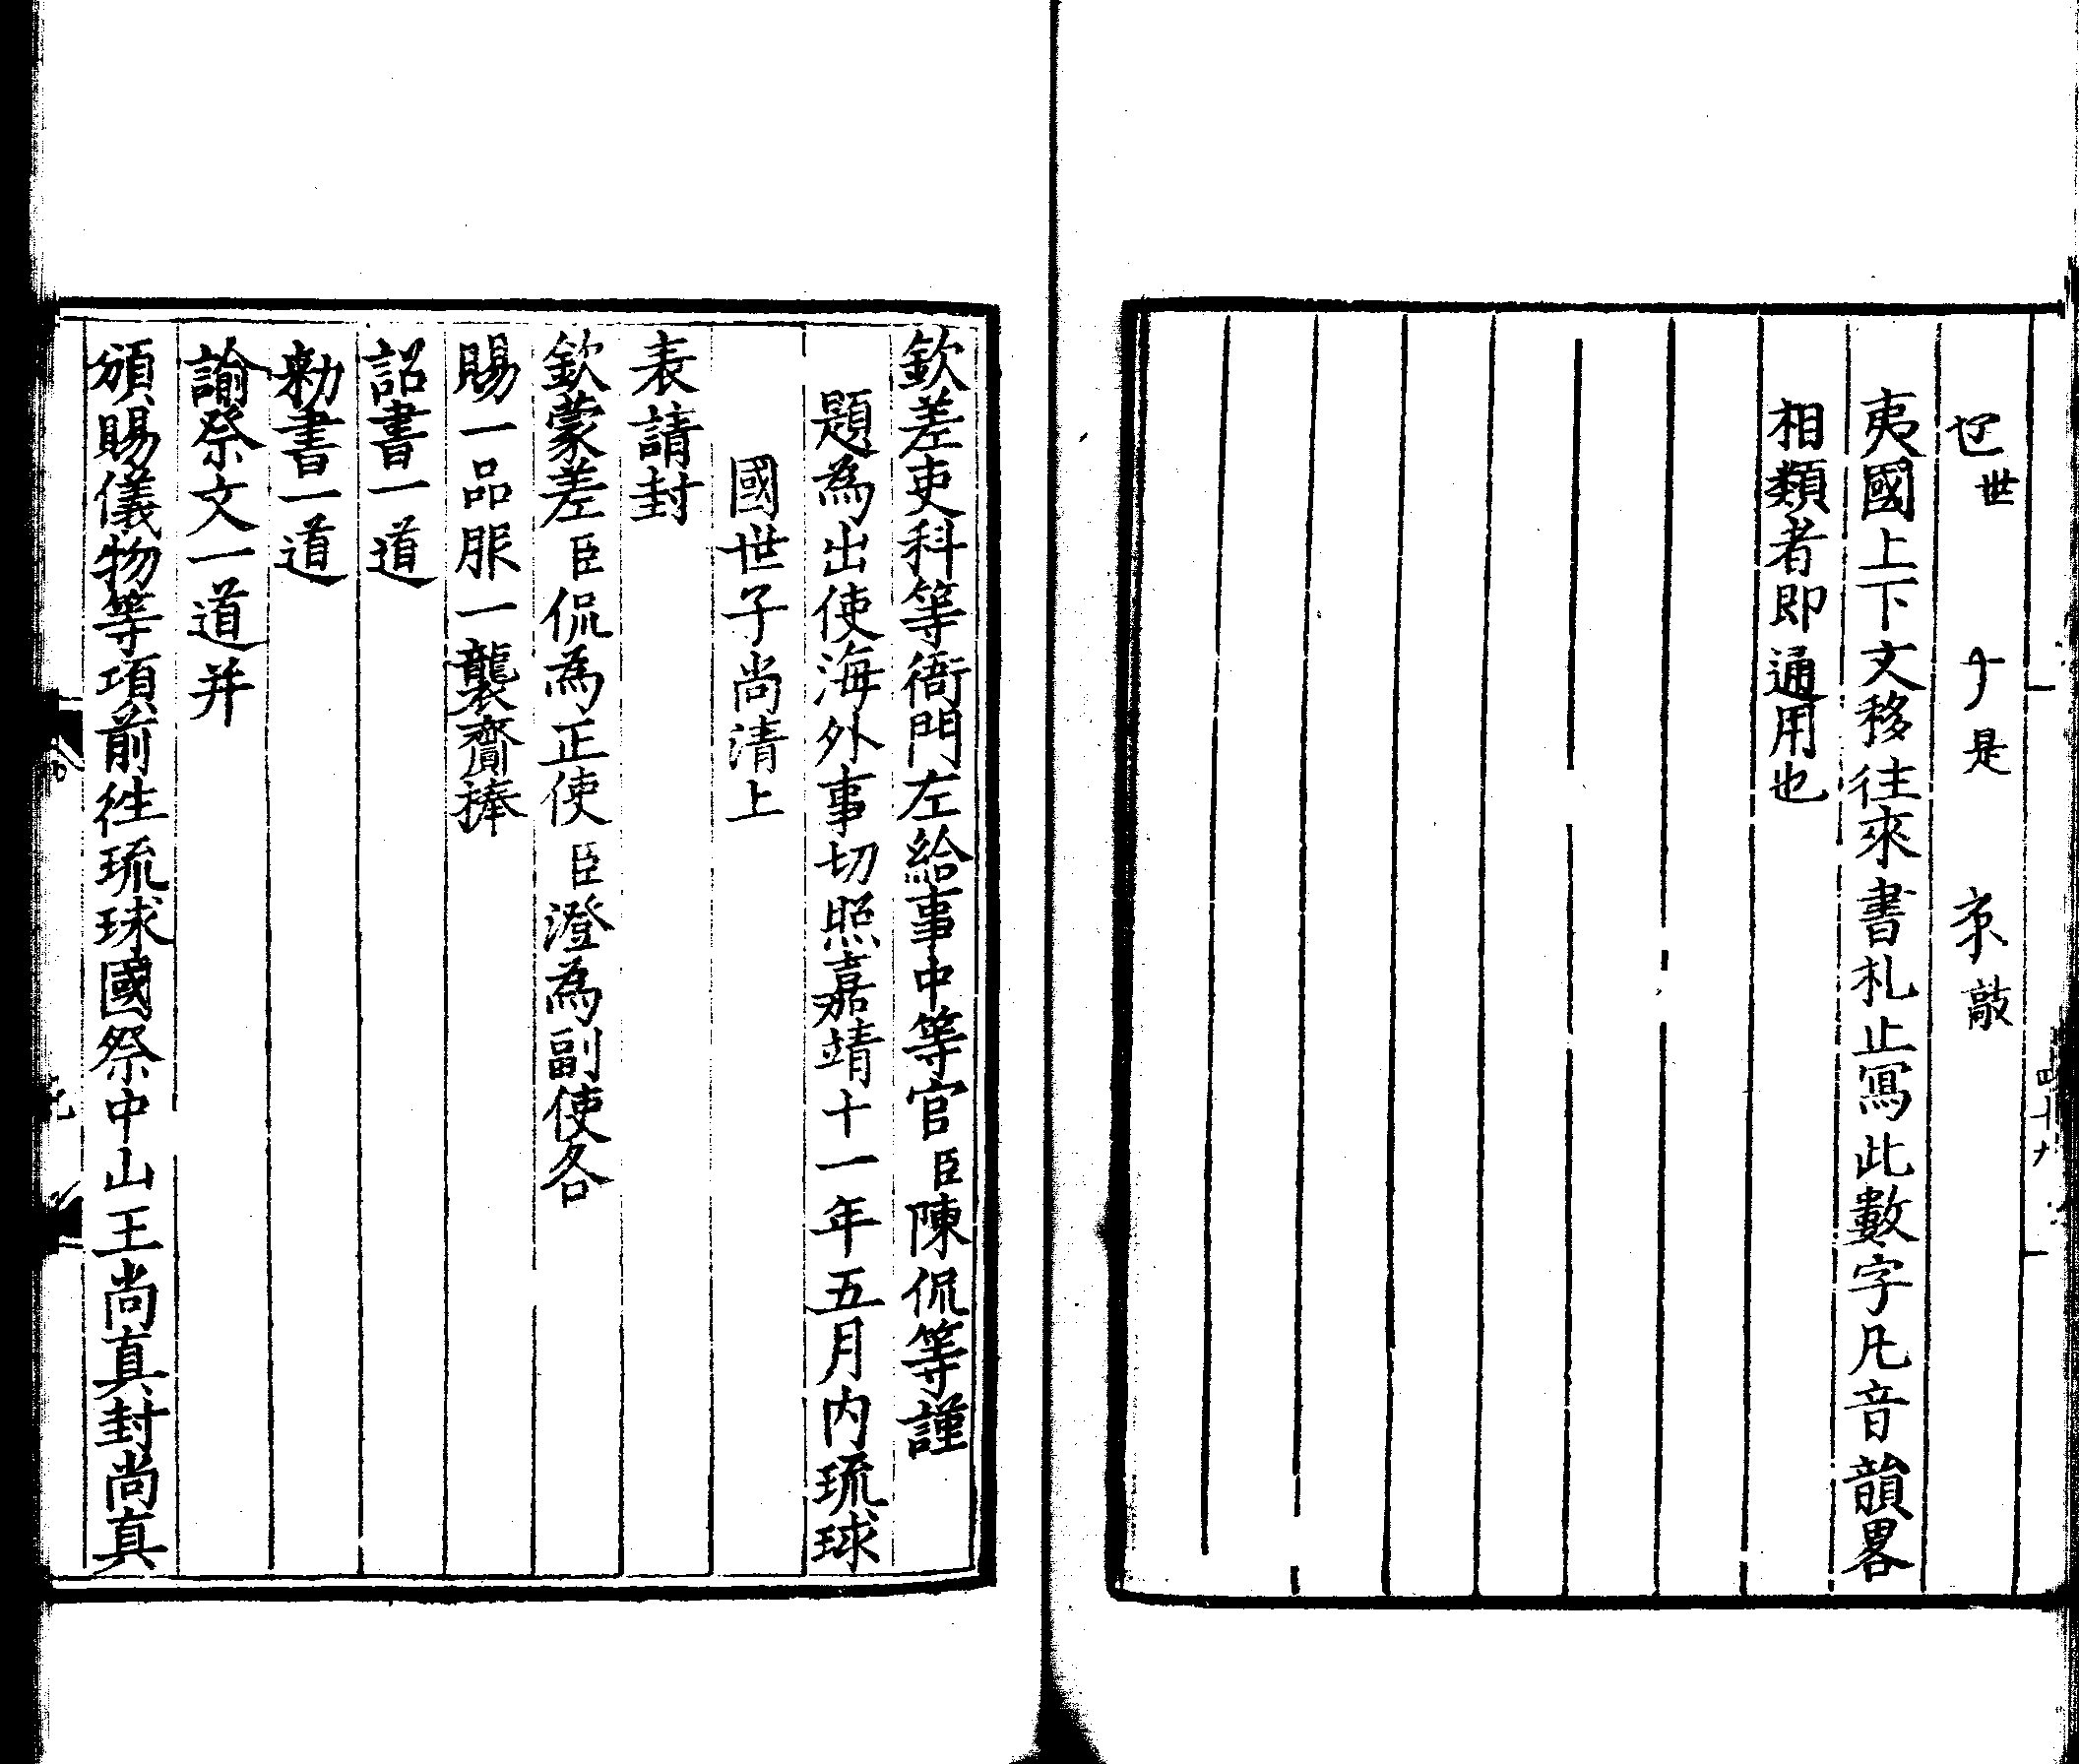 世
是
敲
夷國上下文移往來書札止寫此數字凡音韻畧
相類者即通用也
四十九
欽差吏科等衙門左給事中等官臣陳侃等謹
題為出使海外事切照嘉靖十一年五月内琉球
國世子尚清上
表請封
欽蒙差臣侃為正使臣澄為副使各
賜一品服一襲齎捧
詔書一道
勑書一道
諭祭文一道并
頒賜儀物等項前徃琉球國祭中山王尚真封尚真